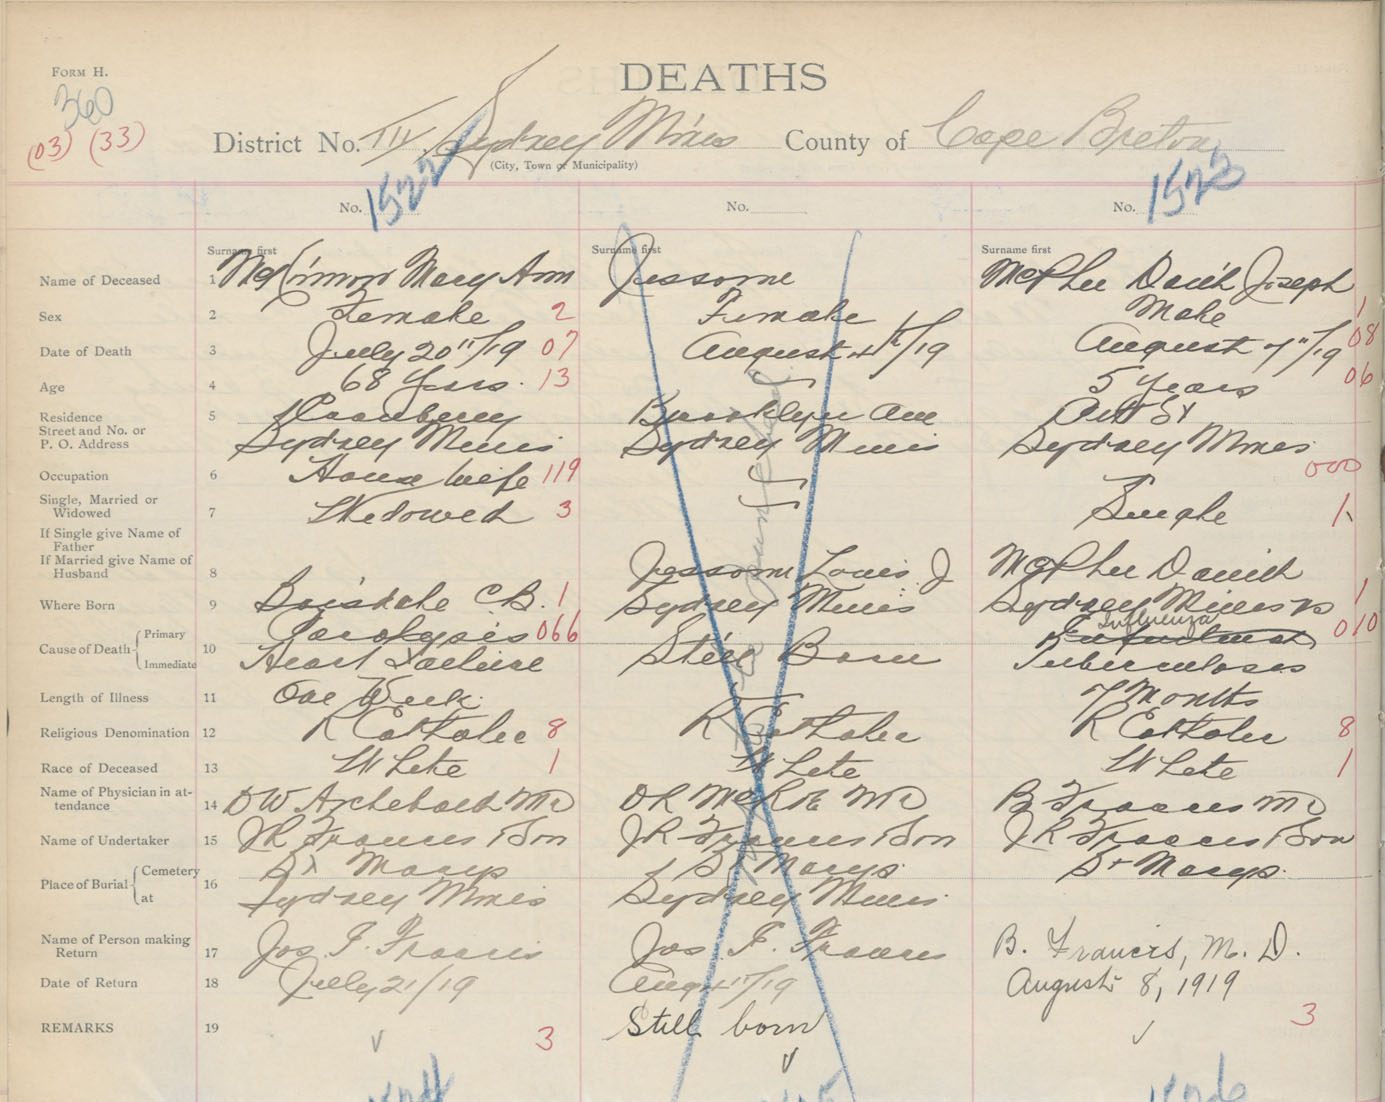 FORM H.
DEATHS
360
(03) (33)
District No. III. Sydney Mines County of Cape Breton
(City, Town or Municipality)
No. 1522 No. No. 1523
Surname first Surname first Surname first
Name of Deceased 1 McKinnon Mary Ann Jessome McPhee Daniel Joseph
Sex 2 Female 2 Female Male 1
Date of Death 3 July 20"/19 07 August 4th/19 August 7"/19 08
Age 4 68 Years. 13 5 Years 06
Residence 5 Cranberry Brooklyn Ave St
Street and No. or
P. O. Address Sydney Mines Sydney Mines Sydney Mines
Occupation 6 House Wife 119 000
Single, Married or
Widowed 7 Widowed 3 Single 1
If Single give Name of
Father
If Married give Name of
Husband 8 Jessome Louis J McPhee Daniel
Where Born 9 Boisdale C.B. 1 Sydney Mines Sydney Mines 1
Cause of Death Primary 10 Paralysis 066 Still Born Influenza 010
Immediate Heart Failure Tuberculosis
Length of Illness 11 One Week 7 Months
Religious Denomination 12 R Catholic 8 R Catholic R Catholic 8
Race of Deceased 13 White 1 White White 1
Name of Physician in at-
tendance 14 DW Archibald MD D R McRae MD B Francis MD
Name of Undertaker 15 JR Francis & Son JR Francis & Son JR Francis & Son
Place of Burial Cemetery 16 St Marys St Marys St Marys
at Sydney Mines Sydney Mines
Name of Person making
Return 17 Jos. F. Francis Jos. F. Francis B. Francis, M. D.
Date of Return 18 July 21/19 Aug 4"/19 August 8, 1919
REMARKS 19 3 Still born 3